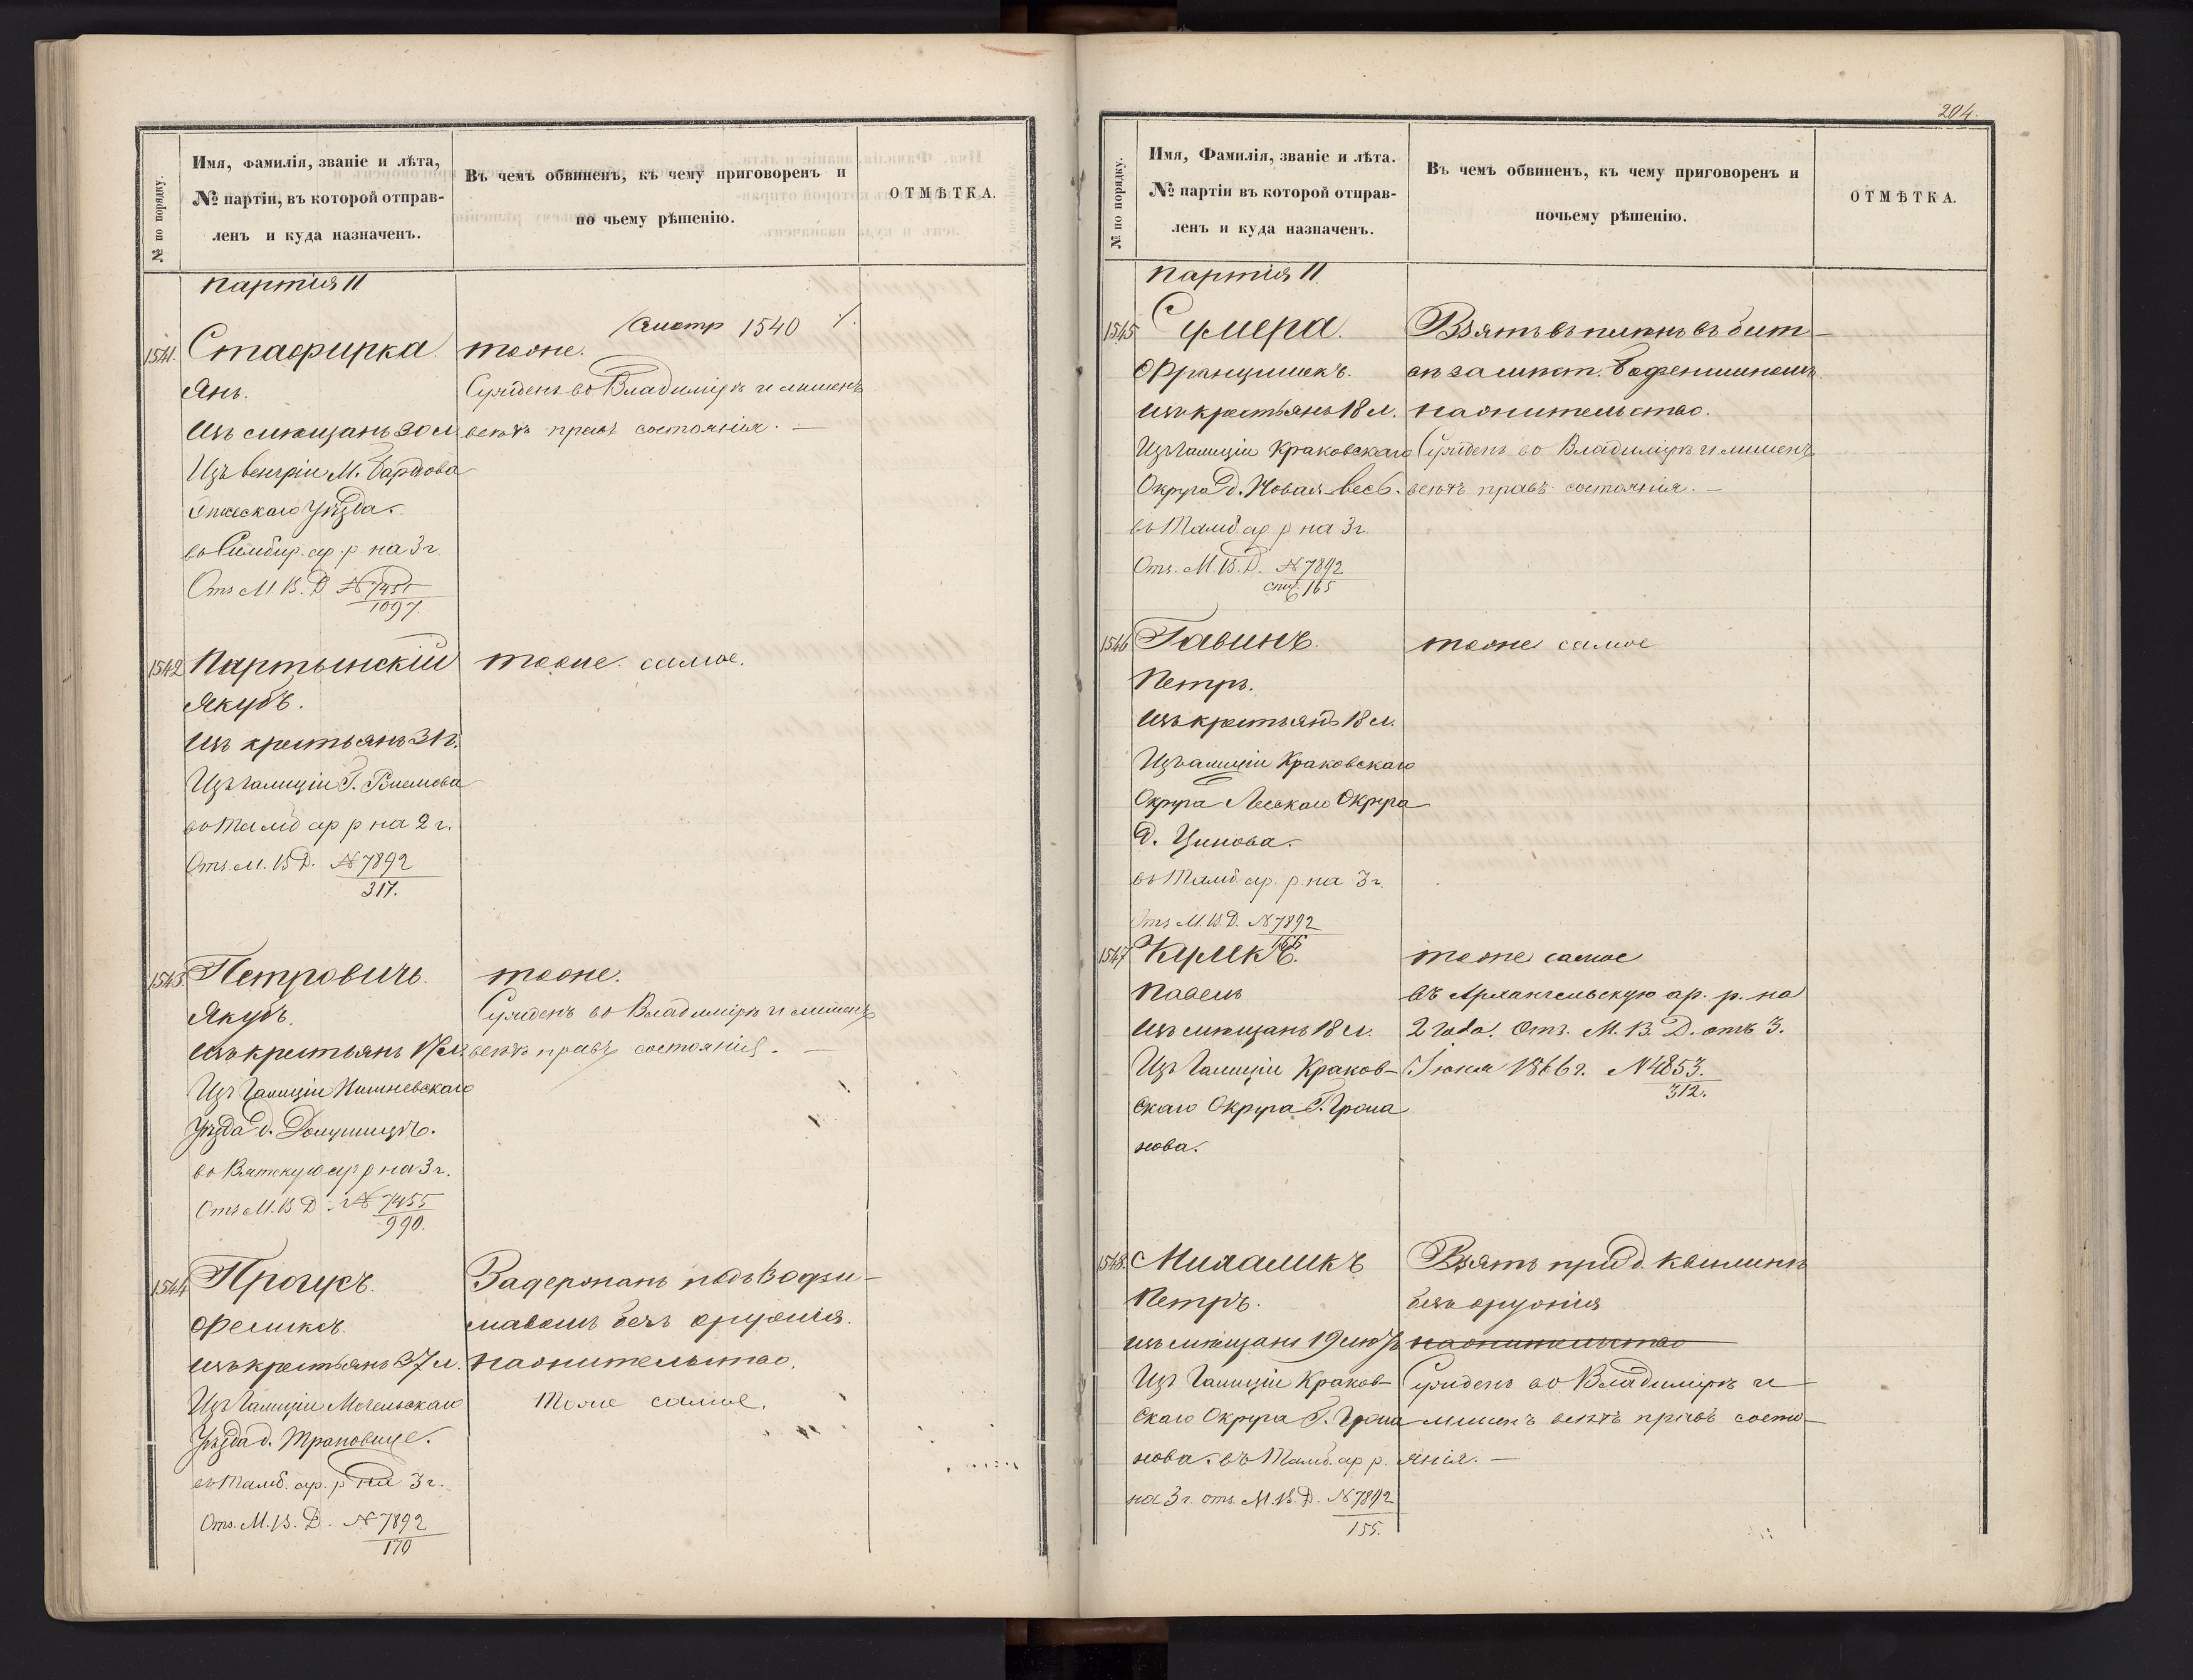 № по порядку.
Имя, Фамилія, званіе и лѣта,
№ партіи, въ которой отправ-
ленъ и куда назначенъ.
Въ чемъ обвиненъ, къ чему приговоренъ и
по чьему рѣшенію.
ОТМѢТКА.
Партія 11
смотр 1540 /.
1541.
Стафирка
Янъ.
Изъ мѣщанъ 30 л.
Изъ Венгріи М. Бардіова
уѣзда.
въ Симбир. ар. р. на 3 г.
Отз М. В. Д № 7455
1097.
тоже.
Сужденъ во Владимірѣ и лишенъ
всѣхъ правъ состоянія. —
1542
Партынскій
Якубъ.
Изъ крестьянъ 31 г.
Изъ Галиціи Г.
въ Тамб ар р на 2 г.
Отз. М. В Д. № 7892
317.
тоже самое.
1543.
Петровичъ.
Якубъ.
Изъ крестьянъ 17 л.
Изъ Галиціи
Уѣзда д.
въ Вятскую ар р на 3 г.
Отз М. В Д. № 7455
990.
тоже.
Сужденъ во Владимірѣ и лишенъ
всѣхъ правъ состоянія. —
1544
Прочукъ.
Феликсъ.
Изъ крестьянъ 37 л.
Изъ Галиціи
Уѣзда д.
въ Тамб. ар. р на 3 г.
Отз. М. В. Д. № 7892
170
Задержанъ подъ Водзи-
славомъ безъ оружія.
на жительство.
Тоже самое.
204.
№ по порядку.
Имя, Фамилія, званіе и лѣта.
№ партіи въ которой отправ-
ленъ и куда назначенъ.
Въ чемъ обвиненъ, къ чему приговоренъ и
почьему рѣшенію.
ОТМѢТКА.
Партія 11.
1545
Сумера.
Францишекъ.
Изъ крестьянъ 18 л.
Изъ Галиціи Краковскаго
Округа д. Новая Весь.
въ Тамб. ар р на 3 г.
Отз. М. В. Д. № 7892
165
Взятъ въ плѣнъ въ бит-
на жительство.
Сужденъ во Владимірѣ и лишенъ
всѣхъ правъ состоянія. —
1546
Гавинъ.
Петръ.
Изъ крестьянъ 18 л.
Изъ Галиціи Краковскаго
Округа Округа
д.
въ Тамб. ар. р. на 3 г.
Отз М. В. Д. № 7892
166
тоже самое
1547
Курекъ.
Павелъ
Изъ мѣщанъ 18 л.
Изъ Галиціи Краков-
скаго Округа Г. Хржа
нова.
тоже самое
въ Архангельскую ар. р. на
2 года. Отз. М. В. Д. отъ 3.
Іюня 1866 г. № 4853.
312.
1548.
Михаликъ
Петръ.
изъ мѣщанъ 19 лѣтъ
Изъ Галиціи Краков-
скаго Округа Г. Хржа
нова. въ Тамб. ар р.
на 3 г. отз. М. В. Д. № 7892
155.
Взятъ при д.
безъ оружія
на жительство
Сужденъ во Владимірѣ и
лишенъ всѣхъ правъ состо-
янія. —